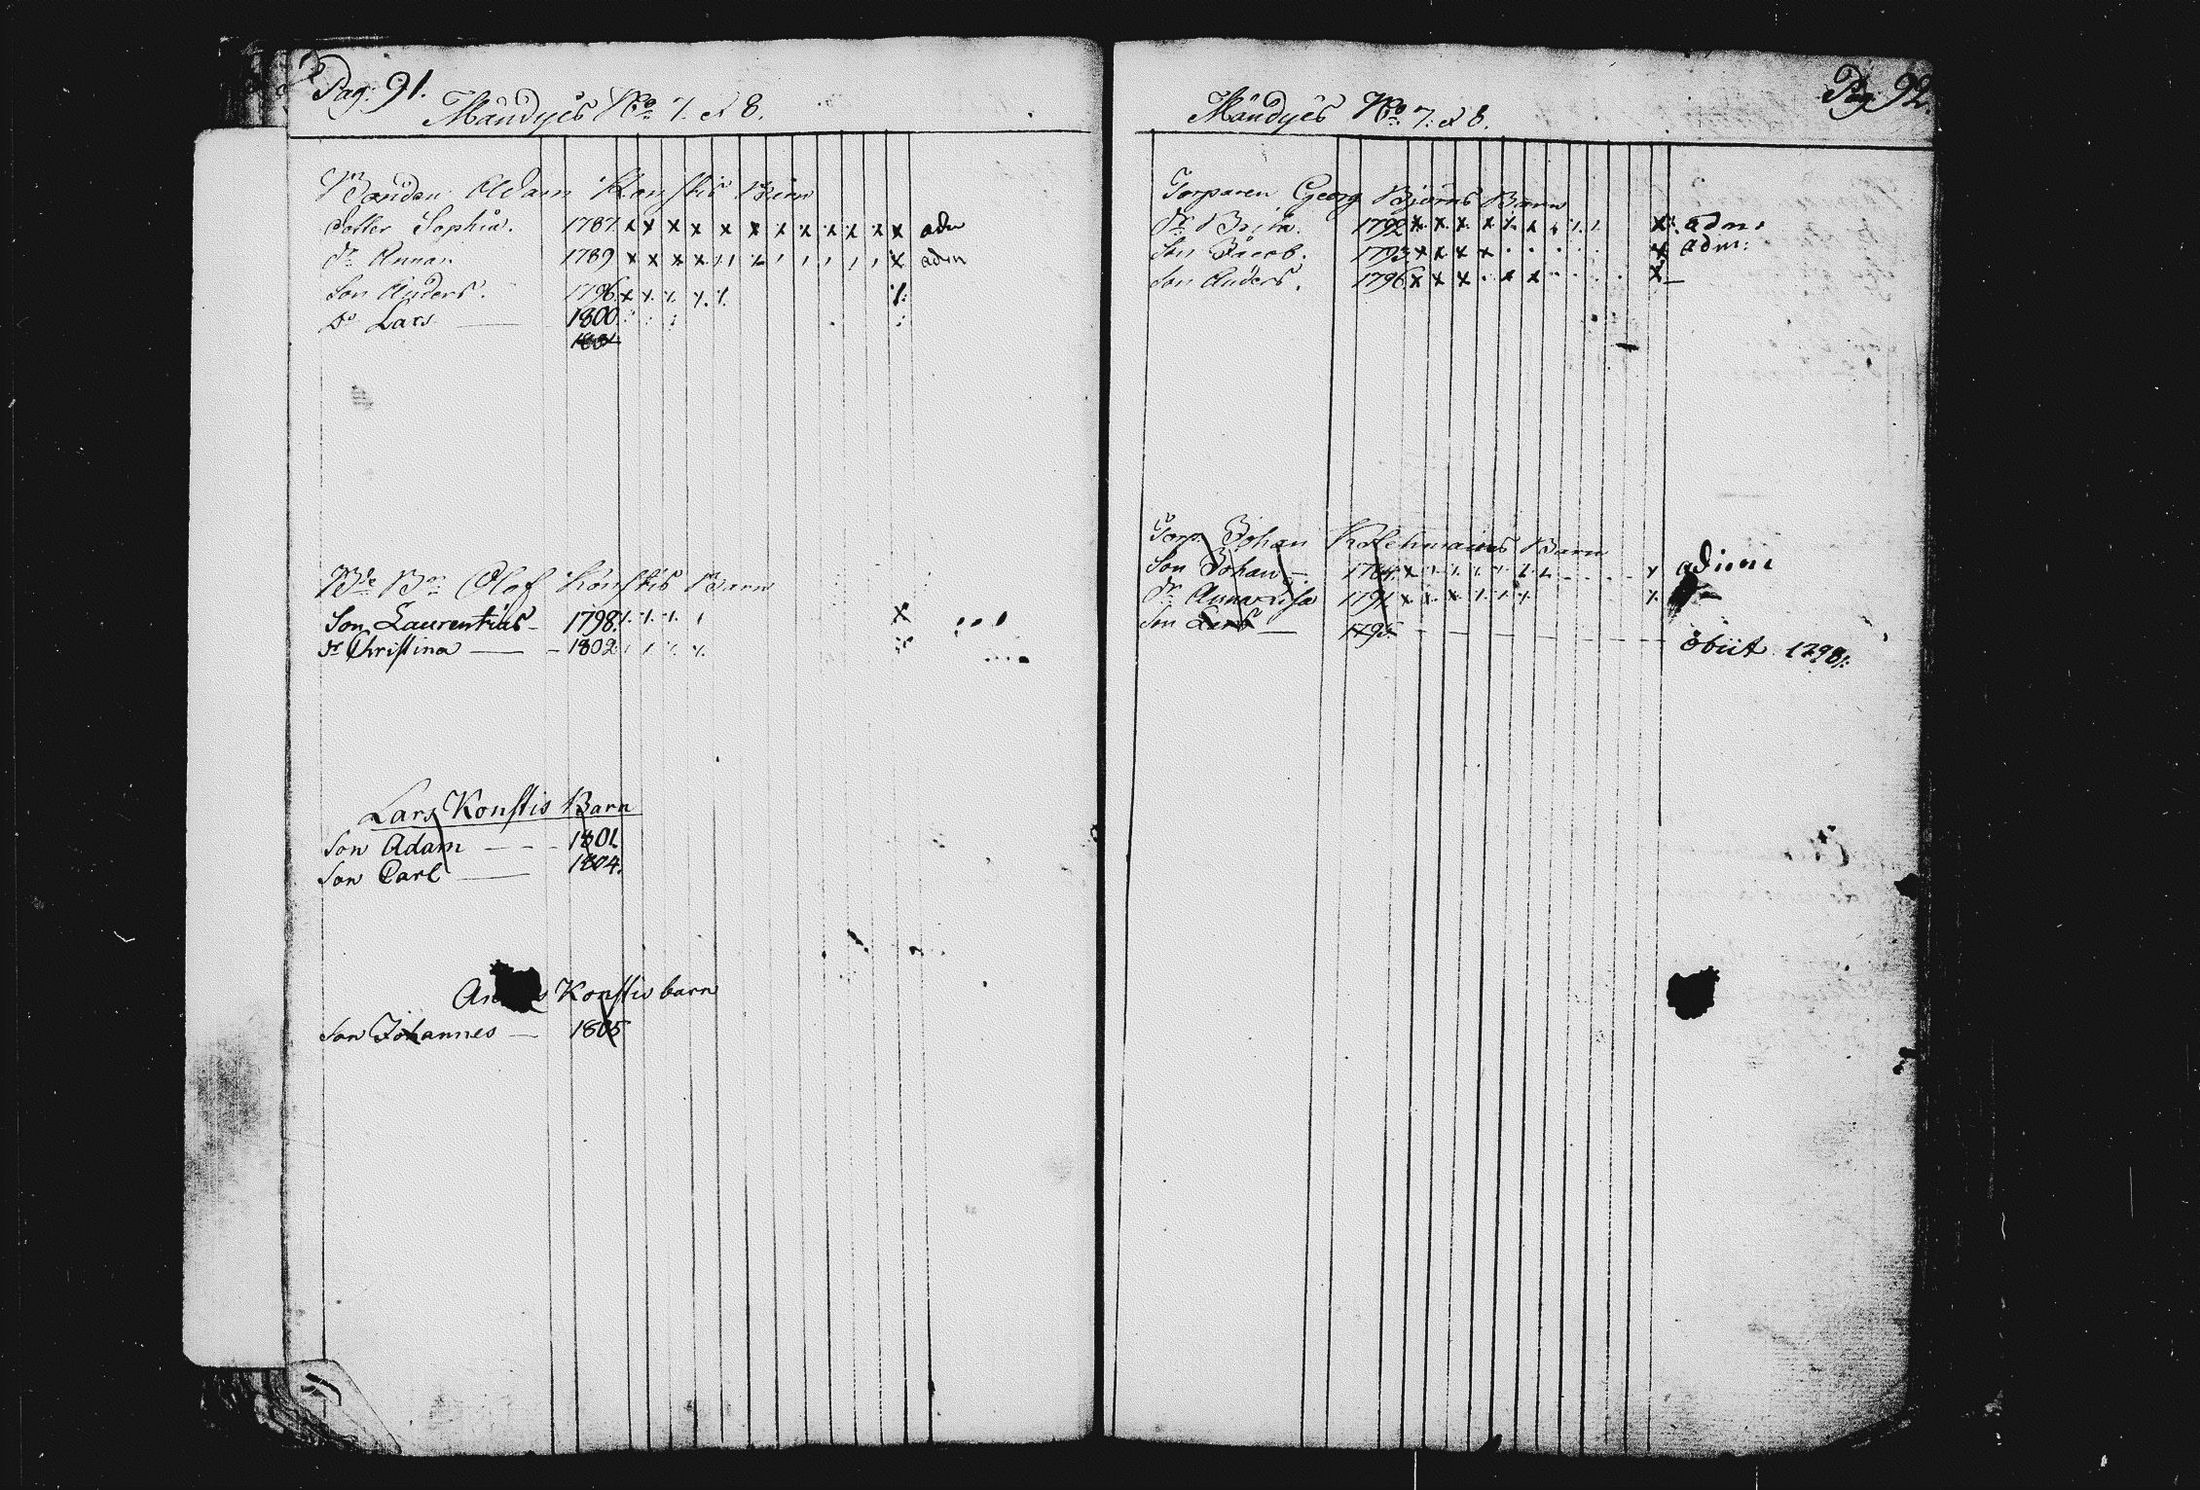 Pag: 91.
Mandyes No 7. et 8.
Bonden Adam Konstis Barn
Dotter Sophia. 1787. x x x x x x x x x x x x adm
Dr Anna. 1789 x x x x x adm
Son Anders. 1796. x
Do Lars — 1800.
1801
Bde Bn Olof Konstis Barn
Son Laurentius — 1798. x
Dr Christina — 1802
Lars Konstis Barn
Son Adam — 1801
Son Carl — 1804.
Konstis barn
Son Johannes — 1805
Pag 92
Mandyes No 7. et 8.
Torparen Georg Björns Barn
Dr Brita. 1792 x x x x x x adm:
Son Jacob. 1793 x x x x x adm:
Son Anders. 1796 x x x x x x —
Torp. Johan Barn
Son Johan — 1784. x
Dr Annalisa 1791 x x x
Son Lars — 1795 — obiit 1798.